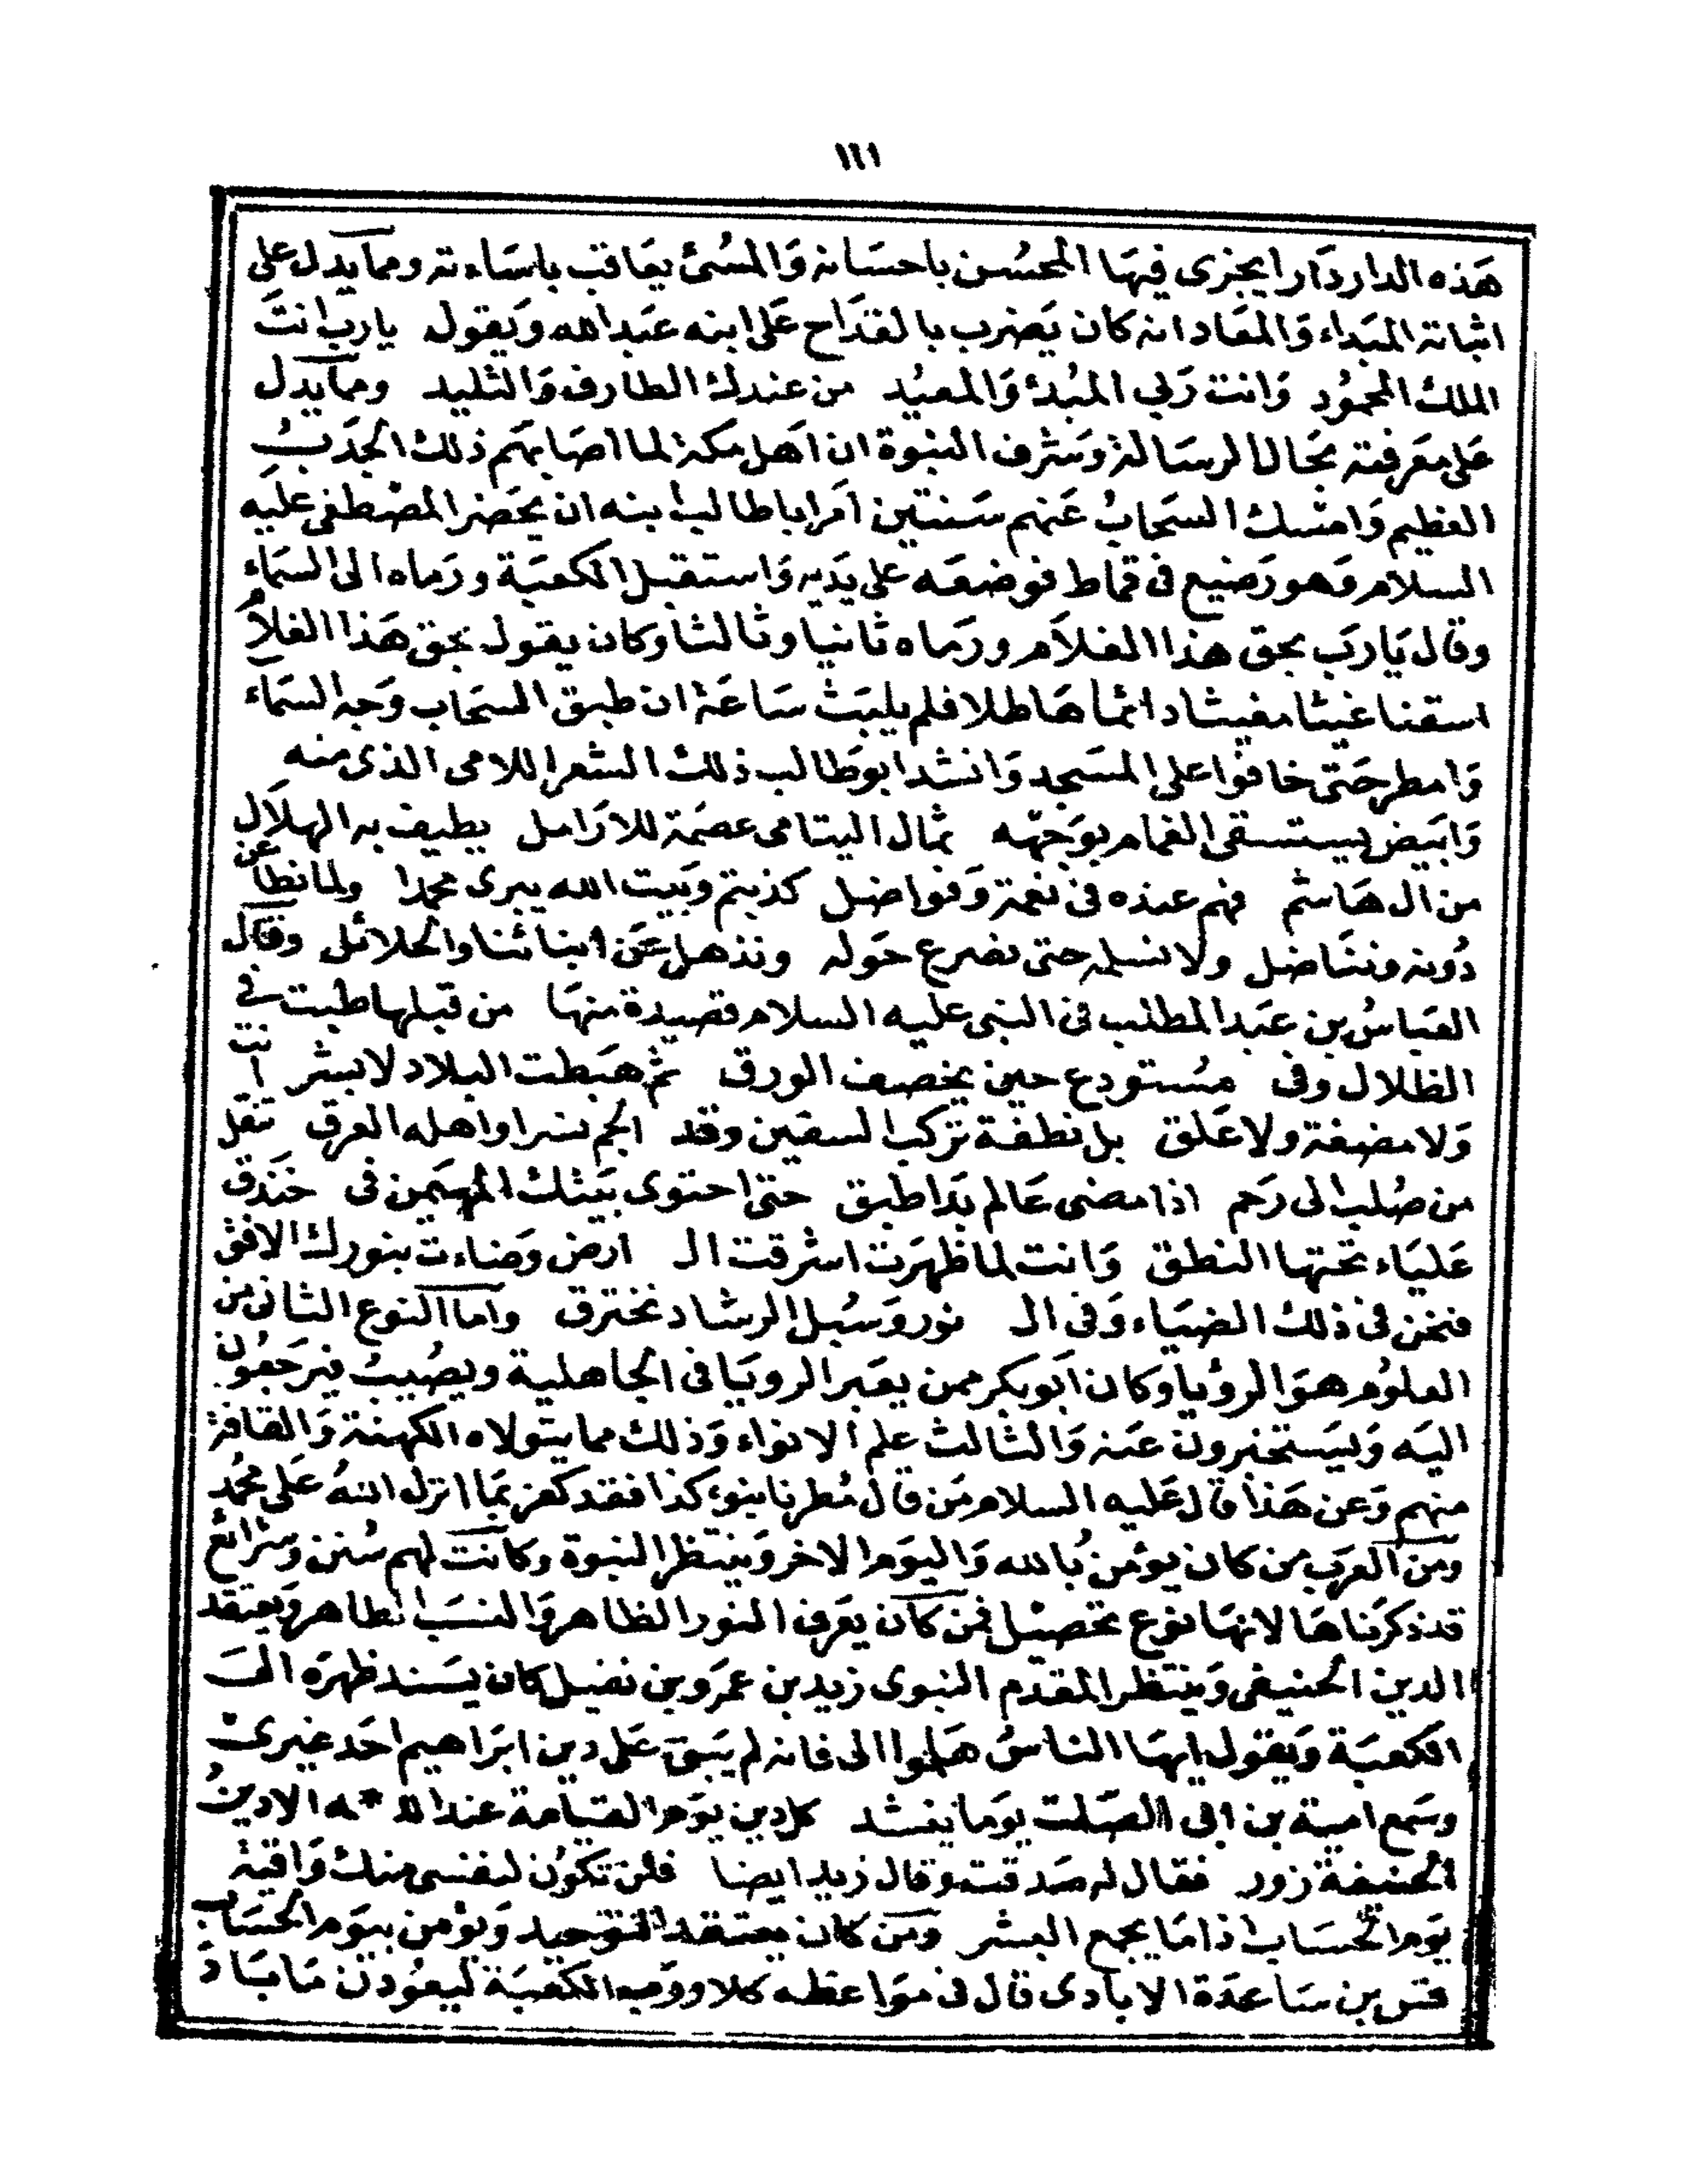 ١١١
هذه الدار دارا يجزى فيها المحسن باحسانه والمسئ يعاقب باساءته ومما يدل على
اثباته المبداء والمعاد انه كان يضرب بالقداح على ابنه عبد الله ويقول يارب انت
الملك المحمود وانت ربي المبدئ والمعيد من عندك الطارف والتليد ومما يدل
على معرفته بحال الرسالة وشرف النبوة ان اهل مكة لما اصابهم ذلك الجدب
العظيم وامسك السحاب عنهم سنتين امر ابا طالب ابنه ان يحضر المصطفى عليه
السلام وهو رضيع فى قماط فوضعه على يديه واستقبل الكعبة ورماه الى السماء
وقال يا رب بحق هذا الغلام ورماه ثانيا وثالثا وكان يقول بحق هذا الغلام
اسقنا غيثا مغيثا دائما هاطلا فلم يلبث ساعة ان طبق السحاب وجه السماء
وامطر حتى خافوا على المسجد وانشد ابو طالب ذلك الشعر اللامى الذى منه
وابيض يستسقى الغمام بوجهه ثمال اليتامى عصمة للارامل يطيف به الهلال
من ال هاشم فهم عنده فى نعمة وفواضل كذبتم وبيت الله يبرى محمدا ولما نطاعن
دونه ونناضل ولا نسلمه حتى نصرع حوله ونذهل عن ابنائنا والحلائل وقال
العباس بن عبد المطلب فى النبى عليه السلام قصيدة منها من قبلها طبت في
الظلال وفى مستودع حين يخصف الورق ثم هبطت البلاد لا بشر انت
ولا مضغة ولا علق بل نطفة تركب السفين وقد الجم نسرا واهله الغرق تنقل
من صلب الى رحم اذا مضى عالم بدا طبق حتى احتوى بيتك المهيمن فى خندق
علياء تحتها النطق وانت لما ظهرت اشرقت ال ارض وضاءت بنورك الافق
فنحن فى ذلك الضياء وفى ال نور وسبل الرشاد نخترق واما النوع الثانى من
العلوم هو الرؤيا وكان ابو بكر ممن يعبر الرويا فى الجاهلية ويصيب فيرجعون
اليه ويستخبرون عنه والثالث علم الانواء وذلك مما يتولاه الكهنة والقافة
منهم وعن هذا قال عليه السلام من قال مطرنا بنوء كذا فقد كفر بما انزل الله على محمد
ومن العرب من كان يؤمن بالله واليوم الاخر وينتظر النبوة وكانت لهم سنن وشرائع
قد ذكرناها لانها نوع تحصيل فمن كان يعرف النور الظاهر والنسب الطاهر ويعتقد
الدين الحنيفى وينتظر المقدم النبوى زيد بن عمرو بن نفيل كان يسند ظهره الى
الكعبة ويقول ايها الناس هلموا الى فانه لم يبق على دين ابراهيم احد غيرى
وسمع امية بن ابى الصلت يوما ينشد كل دين يوم القيامة عند الله الا دين
الحنيفة زور فقال له صدقت وقال زيد ايضا فلن تكون لنفسى منك واقية
يوم الحساب اذا ما يجمع البشر ومن كان يعتقد التوحيد ويؤمن بيوم الحساب
قس بن ساعدة الايادى قال فى مواعظه كلا ورب الكعبة ليعودن ما باد